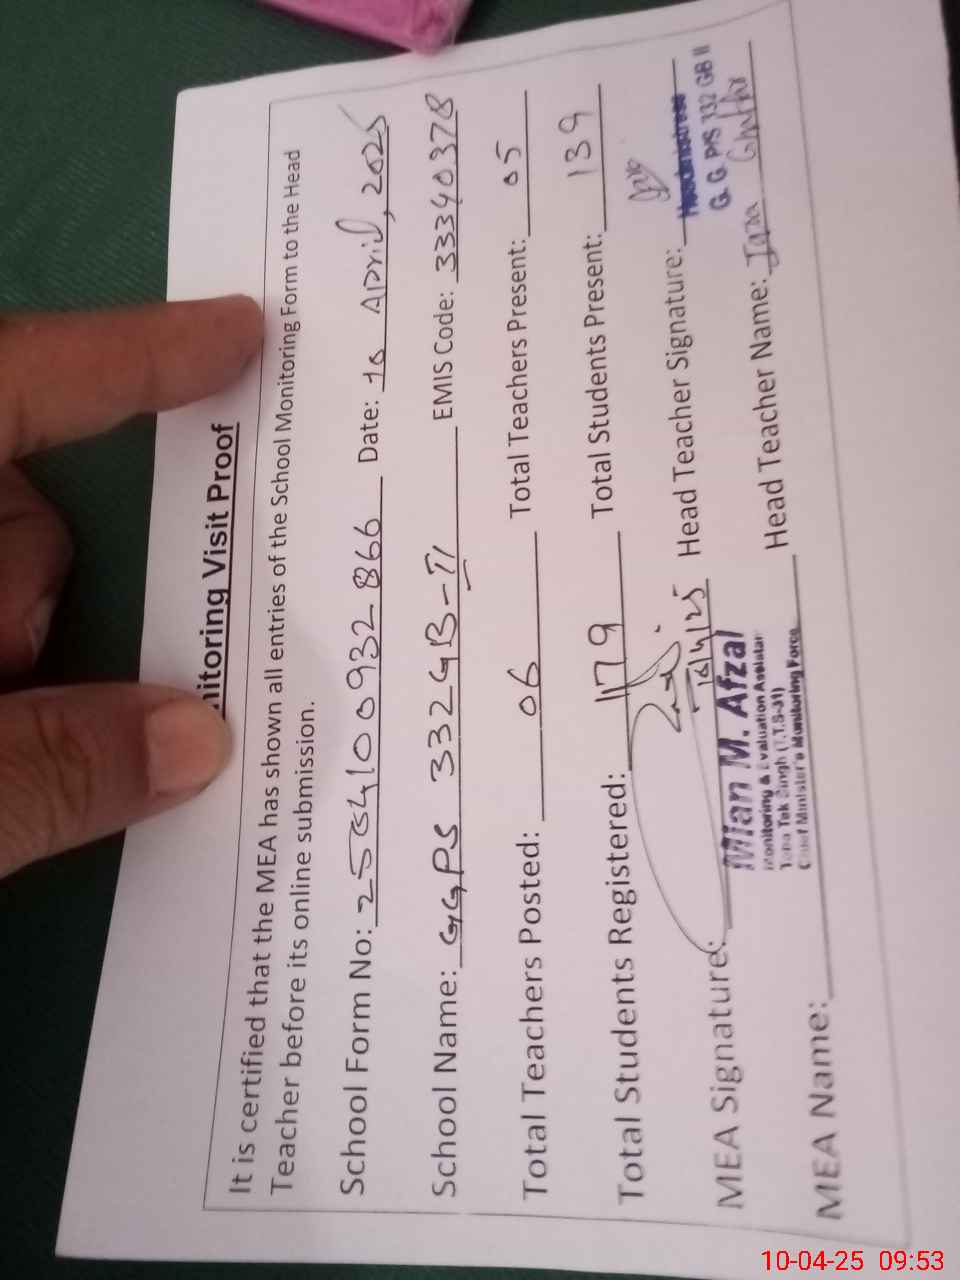 nitoring Visit Proof
It is certified that the MEA has shown all entries of the School Monitoring Form to the Head
Teacher before its online submission.
School Form No: 2504100932866 Date: 10 April, 2025
School Name: GGPS 332GB-II EMIS Code: 33340378
Total Teachers Posted: 06 Total Teachers Present: 05
Total Students Registered: 179 Total Students Present: 139
MEA Signature: 10/4/25 Head Teacher Signature:
Mian M. Afzal
Monitoring & Evaluation Assistan
Toba Tek Singh (T.T.S-31)
Chief Minister's Monitoring Force
Headmistress
G. G. P/S 332 GB II
MEA Name: Head Teacher Name: Iqra
10-04-25 09:53